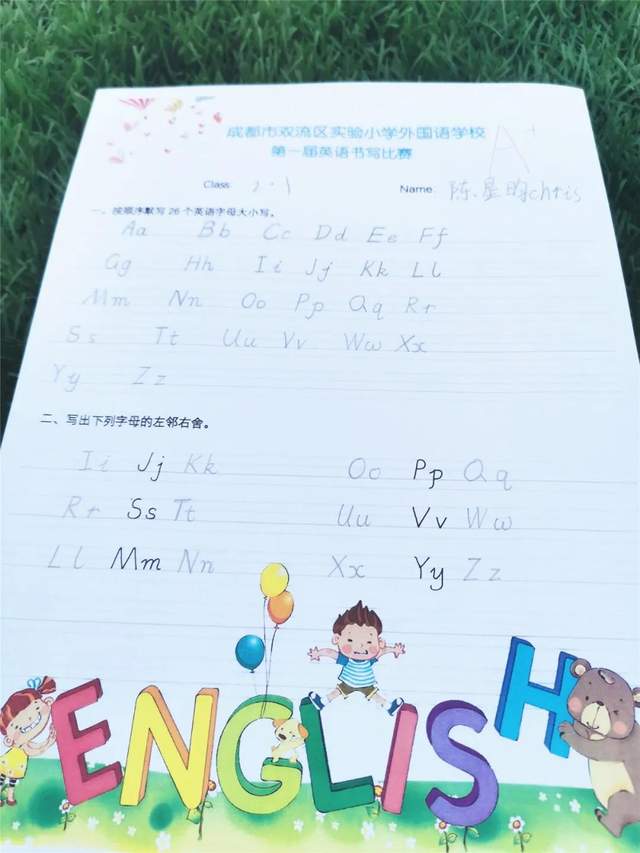 成都市双流区实验小学外国语学校
第一届英语书写比赛
A+
Class 2.1 Name: 陈星昀chris
一、按顺序默写26个英语字母大小写。
Aa Bb Cc Dd Ee Ff
Gg Hh Ii Jj Kk Ll
Mm Nn Oo Pp Qq Rr
Ss Tt Uu Vv Ww Xx
Yy Zz
二、写出下列字母的左邻右舍。
Ii Jj Kk Oo Pp Qq
Rr Ss Tt Uu Vv Ww
Ll Mm Nn Xx Yy Zz
ENGLISH